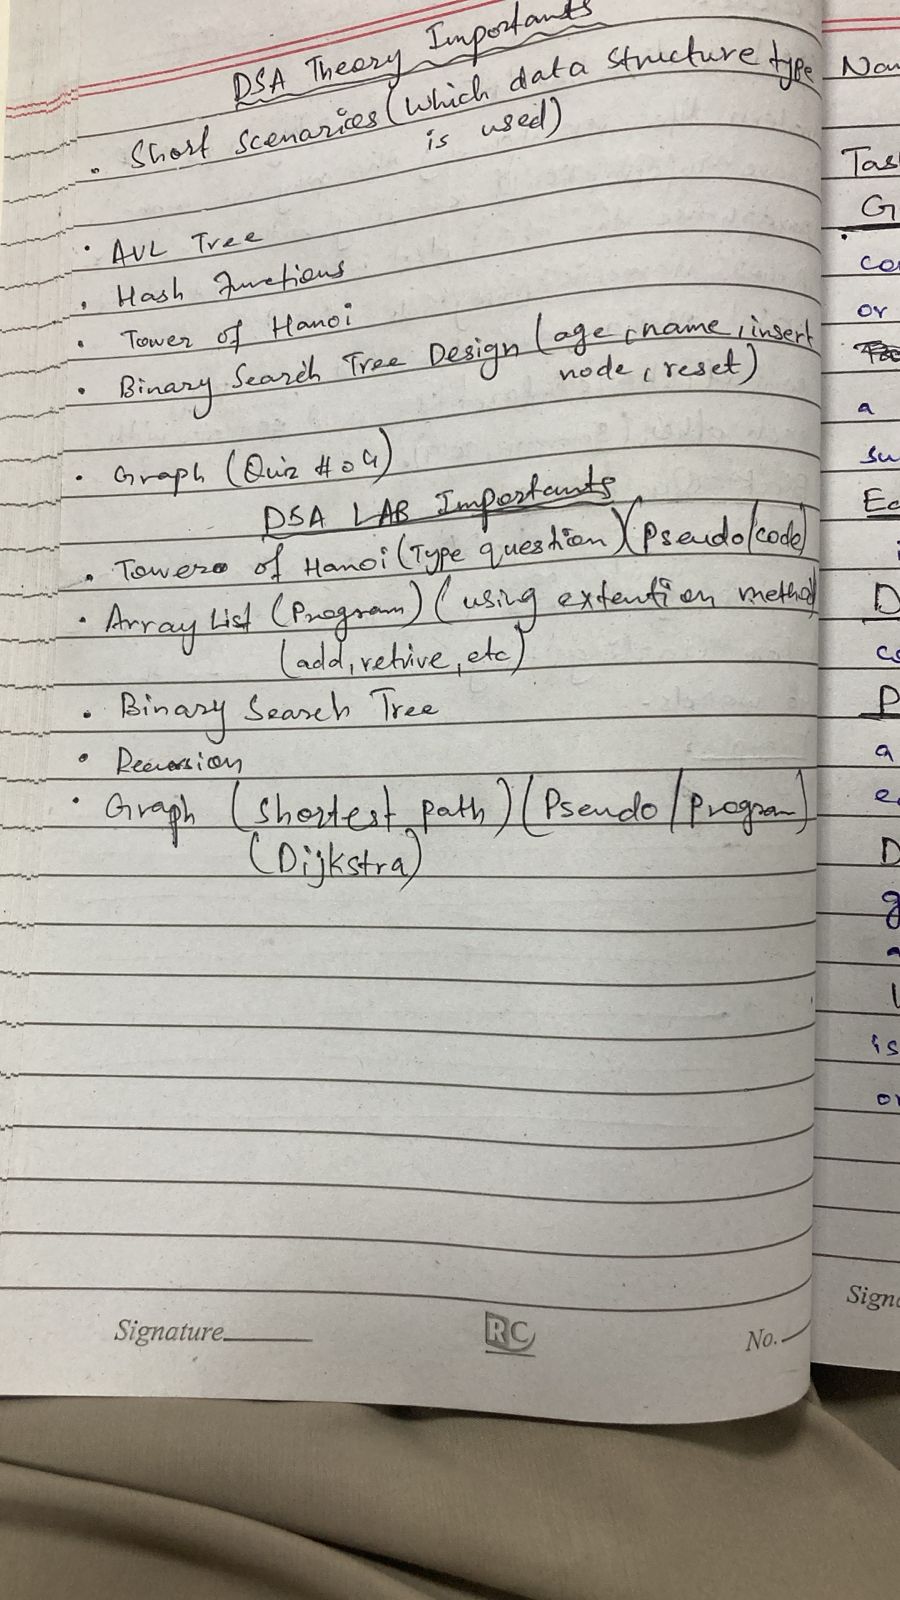 DSA Theory Importants
• Short Scenarios (which data structure type
is used)
• AVL Tree
• Hash Functions
• Tower of Hanoi
• Binary Search Tree Design (age, name, insert
node, reset)
• Graph (Quiz #04)
DSA LAB Importants
• Towers of Hanoi (Type question) (Pseudo/code)
• Array List (Program) (using extention method)
(add, retrive, etc)
• Binary Search Tree
• Recursion
• Graph (Shortest path) (Pseudo/Program)
(Dijkstra)
Signature
RC
No.
Nam
Tas
G
co
or
a
su
Ea
i
D
co
P
a
ea
D
g
a
is
or
Signa